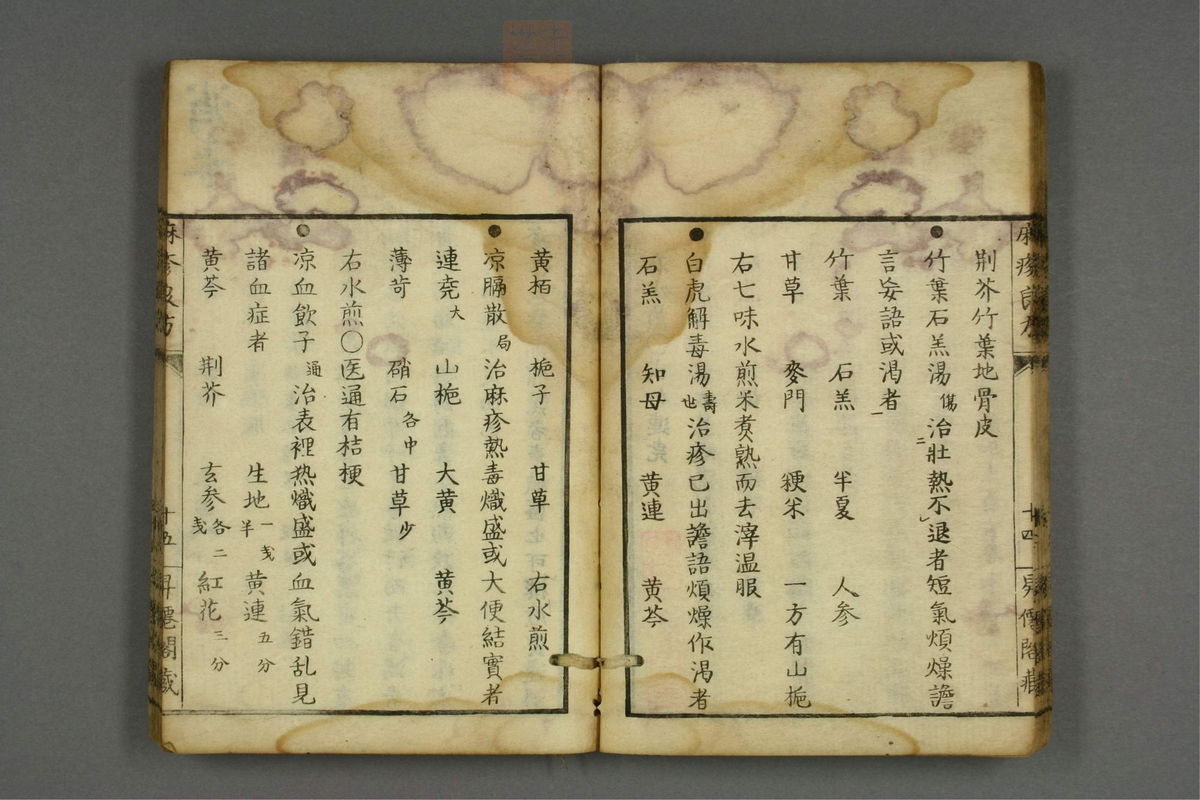 荆芥竹葉地骨皮
●竹葉石羔湯傷治壯熱不退者短氣煩燥譫
言妄語或渇者
竹葉 石羔 半夏 人参
甘草 麥門 粳米 一方有山梔
右七味水煎米煑熟而去滓温服
●白虎解毒湯壽世治疹已出譫語煩燥作渇者
石羔 知母 黄連 黄芩
黄栢 梔子 甘草 右水煎
●凉膈散局治麻疹熱毒熾盛或大便結實者
連尭大 山梔 大黄 黄芩
薄苛 硝石各中 甘草少
右水煎〇医通有桔梗
●凉血飲子通治表裡热熾盛或血氣錯乱見
諸血症者 生地一戔半 黄連五分
黄芩 荆芥 玄参各二戔 紅花三分
麻疹良方
十四
麻疹良方
十五